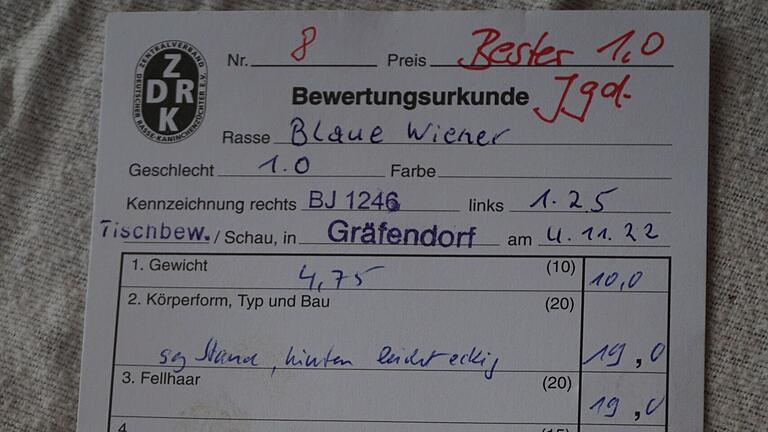 ZENTRALVERBAND
DEUTSCHER RASSE-KANINCHENZÜCHTER E.V.
Z
DRK
K
Nr. 8 Preis Bester 1.0
Bewertungsurkunde Jgd.
Rasse Blaue Wiener
Geschlecht 1.0 Farbe
Kennzeichnung rechts BJ 1246 links 1.25
Tischbew. / Schau, in Gräfendorf am 4.11.22
1. Gewicht 4,75 (10) 10,0
2. Körperform, Typ und Bau (20)
sg Stand, hinten leicht eckig 19,0
3. Fellhaar (20)
19,0
4. (15)